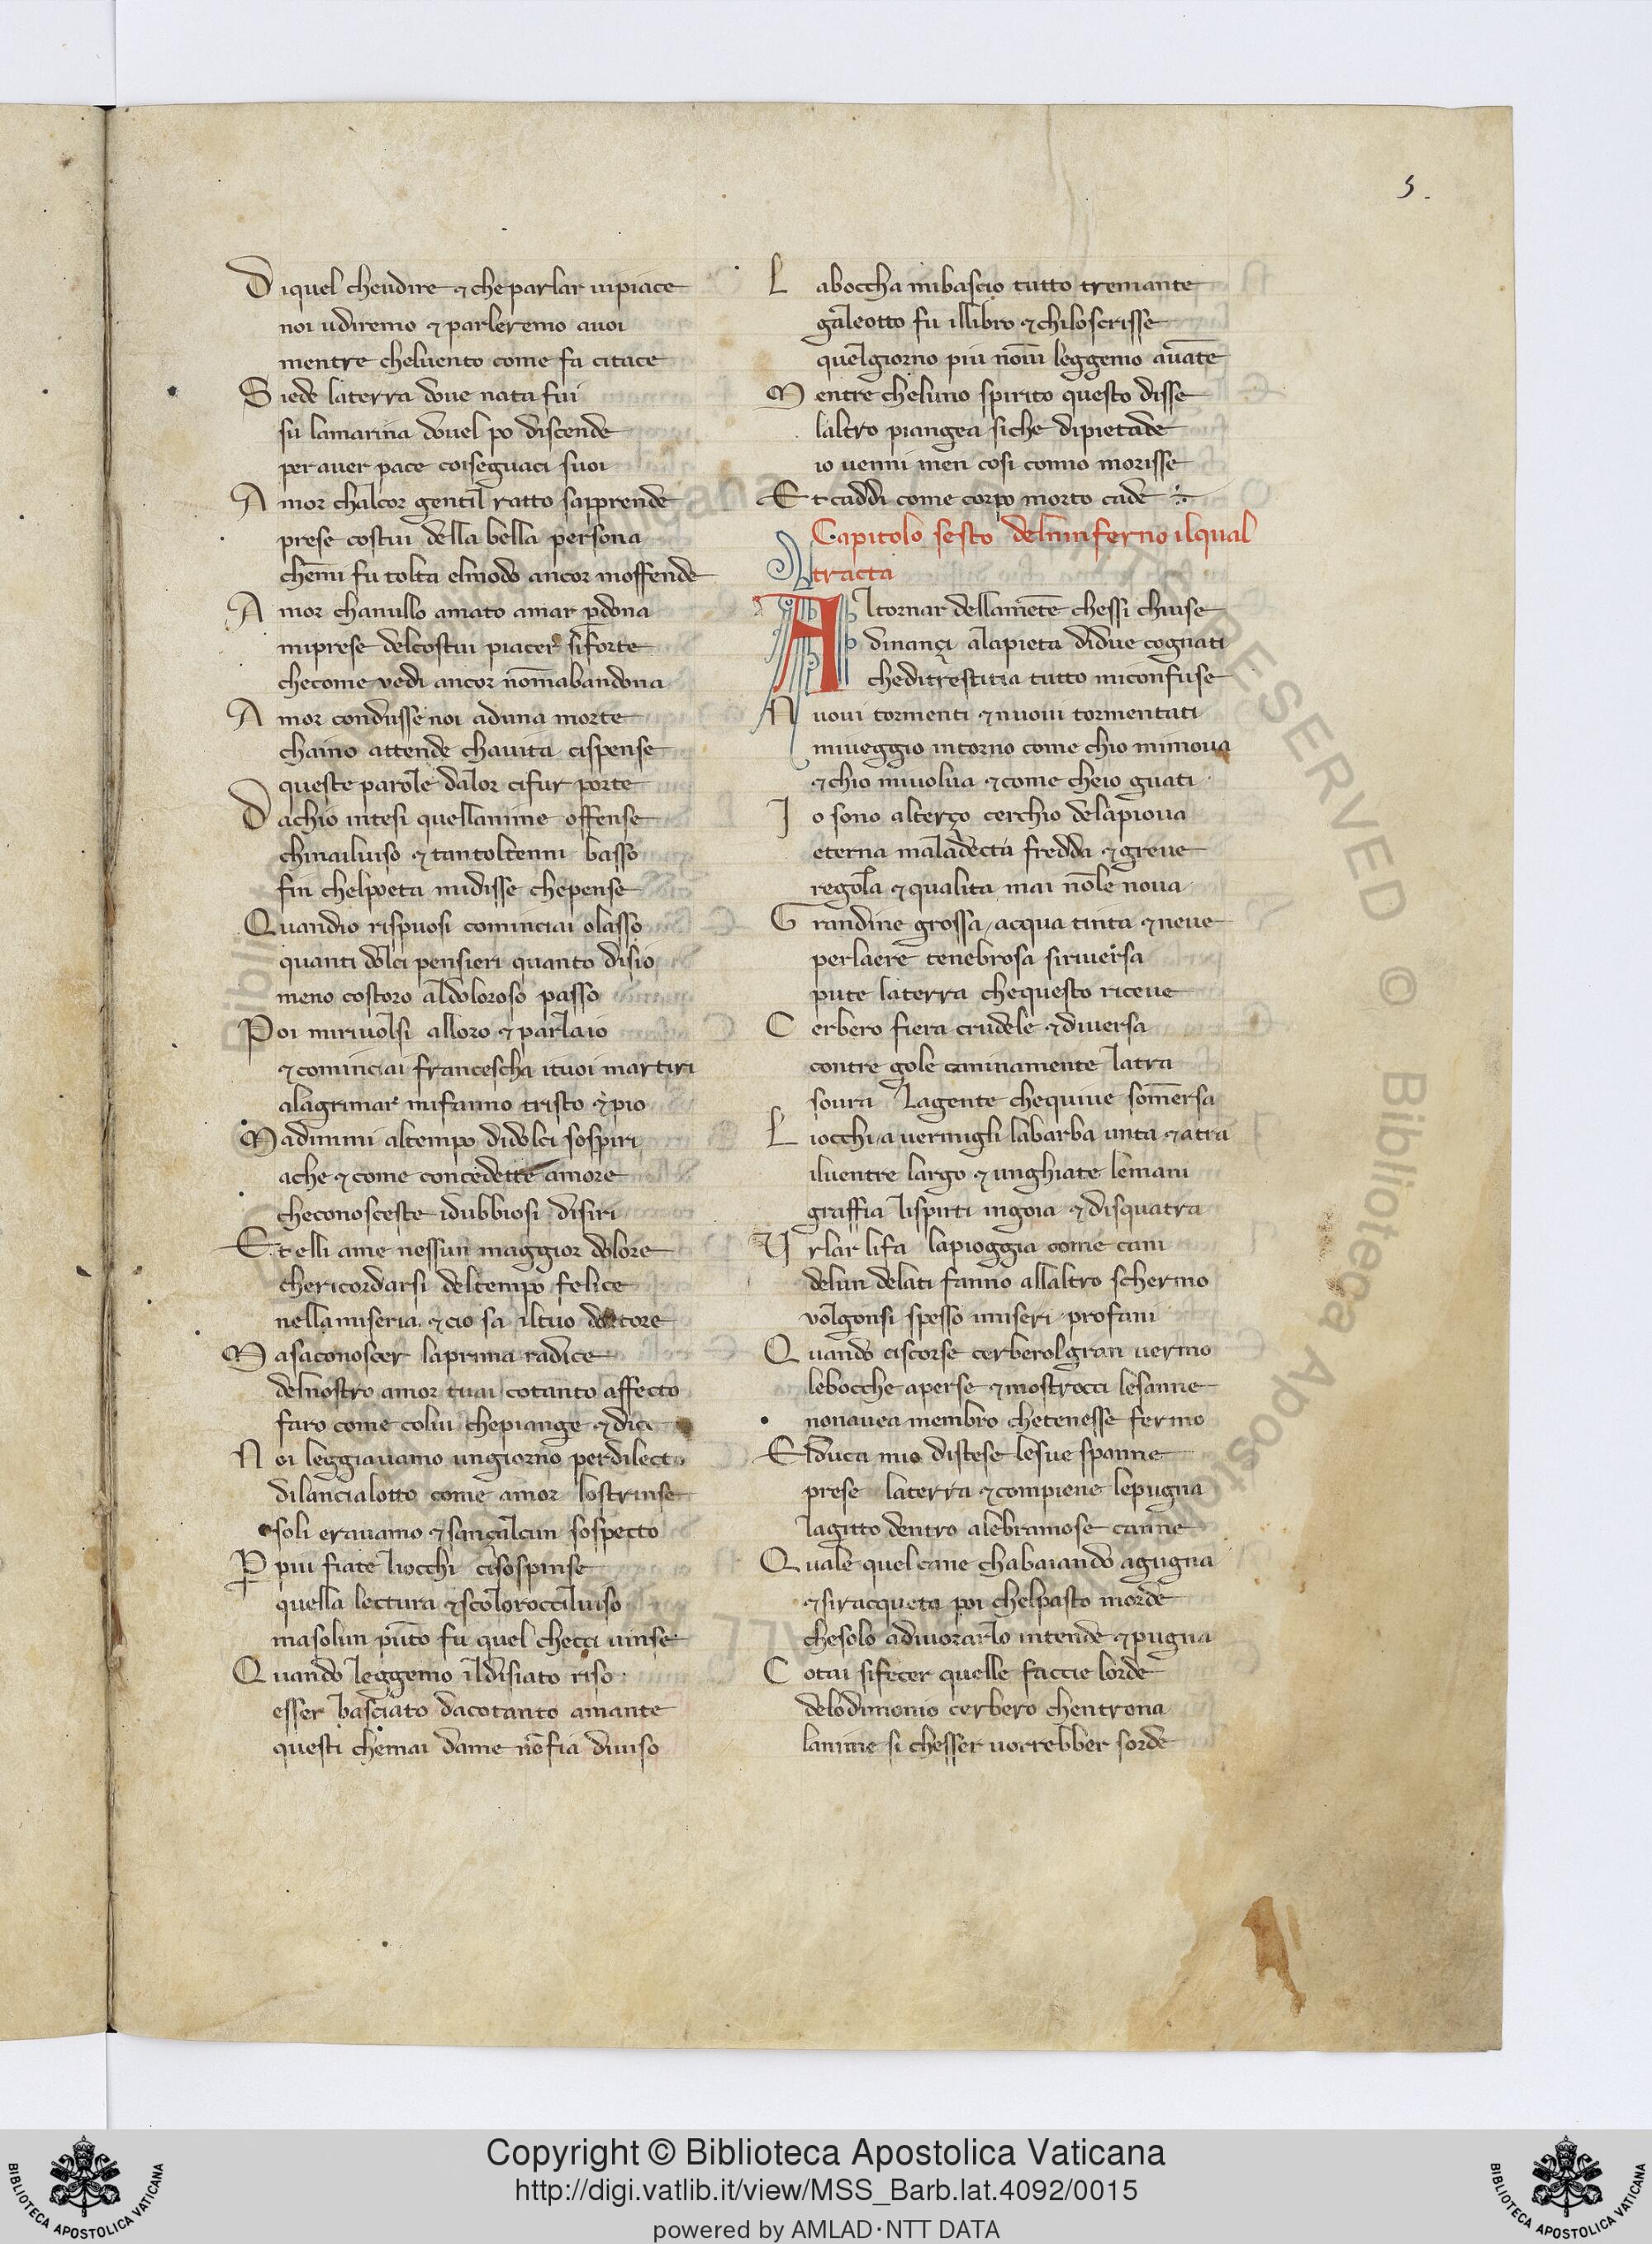 5.
Diquel cheudire ⁊ cheparlar uipiace
noi udiremo ⁊ parleremo auoi
mentre cheluento come fa citace
Siede laterra doue nata fui
su lamarina douel po discende
per auer pace coiseguaci suoi
Amor chalcor gentil ratto sapprende
prese costui della bella persona
chemi fu tolta elmodo ancor moffende
Amor chanullo amato amar ꝑdona
miprese delcostui piacer siforte
checome vedi ancor nōmabandona
Amor condusse noi aduna morte
chaino attende chauita cispense
queste parole dalor cifur porte
Dachio intesi quellanime offense
chinailuiso ⁊ tantoltenni basso
fin chelpoeta midisse chepense
Quandio rispuosi cominciai olasso
quanti dolci pensieri quanto disio
meno costoro aldoloroso passo
Poi mirivolsi alloro ⁊ parlaio
⁊ cominciai francescha ituoi martiri
alagrimar mifanno tristo ⁊ pio
Madimmi altempo didolci sospiri
ache ⁊ come concedette amore
checonosceste idubbiosi disiri
Et elli ame nessun maggior dolore
chericordarsi deltempo felice
nellamiseria ⁊ cio sa iltuo dottore
Masaconoscer laprima radice
delnostro amor tuai cotanto affecto
faro come colui chepiange ⁊ dice
Noi leggiauamo ungiorno perdilecto
dilancialotto come amor lostrinse
soli erauamo ⁊ sançalcun sospecto
Ꝑ piu fiate liocchi cisospinse
quella lectura ⁊ scoloroccilviso
masolun pūto fu quel checci uinse
Quando leggemo ildisiato riso
esser basciato dacotanto amante
questi chemai dame nōfia diuiso
Laboccha mibascio tutto tremante
galeotto fu illibro ⁊ chiloscrisse
quelgiorno piu nōui leggemo auāte
Mentre cheluno spirito questo disse
laltro piangea siche dipietade
io uenni men cosi comio morisse
Et caddi come corpo morto cade
Capitolo sesto deluinferno ilqual
tracta
Altornar dellamēte chessi chiuse
dinançi alapieta didue cognati
cheditrestitia tutto miconfuse
Nuoui tormenti ⁊ nuoui tormentati
miueggio intorno come chio mimoua
⁊ chio miuolua ⁊ come cheio guati
Io sono alterço cerchio delapioua
eterna maladecta fredda ⁊ greue
regola ⁊ qualita mai nōle noua
Grandine grossa / acqua tinta ⁊ neue
perlaere tenebrosa siriuersa
pute laterra chequesto riceue
Cerbero fiera crudele ⁊ diuersa
contre gole caninamente latra
soura lagente chequiue somersa
Liocchi a uermigli labarba unta ⁊ atra
iluentre largo ⁊ unghiate lemani
graffia lispirti ingoia ⁊ disquatra
Urlar lifa lapioggia come cani
delun delati fanno allaltro schermo
volgonsi spesso imiseri profani
Quando ciscorse cerberolgran uermo
lebocche aperse ⁊ mostrocci lesanne
nonauea membro chetenesse fermo
Elduca mio distese lesue spanne
prese laterra ⁊ compiene lepugna
lagitto dentro alebramose canne
Quale quel cane chabaiando agugna
⁊ siracqueta poi chelpasto morde
chesolo adiuorarlo intende ⁊ pugna
Cotai sifecer quelle faccie lorde
delodimonio cerbero chentrona
lanime si chesser uorrebber sorde
Copyright © Biblioteca Apostolica Vaticana
http://digi.vatlib.it/view/MSS_Barb.lat.4092/0015
powered by AMLAD·NTT DATA